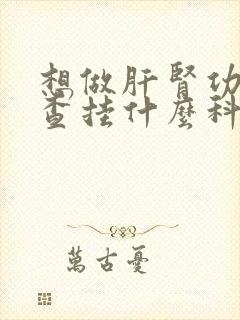 想做肝肾功
查挂什麽科
萬古憂